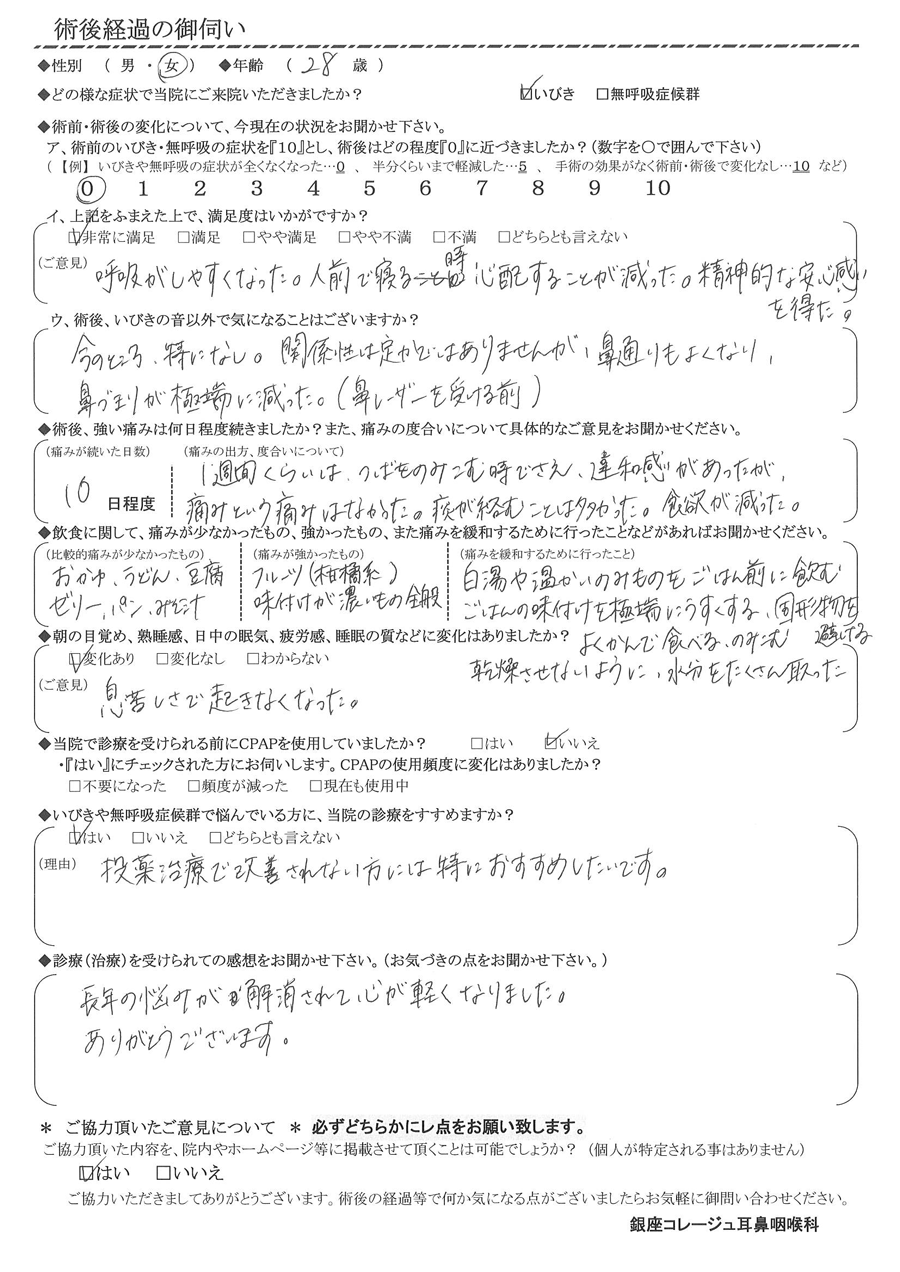 術後経過の御伺い
◆性別 ( 男 ・ 女 ) ◆年齢 ( 28 歳 )
◆どの様な症状で当院にご来院いただきましたか? ☑いびき □無呼吸症候群
◆術前・術後の変化について、今現在の状況をお聞かせ下さい。
ア、術前のいびき・無呼吸の症状を『10』とし、術後はどの程度『0』に近づきましたか?(数字を○で囲んで下さい)
(【例】いびきや無呼吸の症状が全くなくなった…0 、 半分くらいまで軽減した…5 、 手術の効果がなく術前・術後で変化なし…10 など)
0 1 2 3 4 5 6 7 8 9 10
イ、上記をふまえた上で、満足度はいかがですか?
☑非常に満足 □満足 □やや満足 □やや不満 □不満 □どちらとも言えない
(ご意見)
呼吸がしやすくなった。人前で寝る時心配することが減った。精神的な安心感い
を得た。
ウ、術後、いびきの音以外で気になることはございますか?
今のところ、特になし。関係性は定かではありませんが、鼻通りもよくなり、
鼻づまりが極端に減った。(鼻レーザーを受ける前)
◆術後、強い痛みは何日程度続きましたか?また、痛みの度合いについて具体的なご意見をお聞かせください。
(痛みが続いた日数) (痛みの出方、度合いについて)
10 日程度
1週間くらいは、つばものみこむ時でさえ、違和感があったが、
痛みという痛みはなかった。痰が絡むことは多かった。食欲が減った。
◆飲食に関して、痛みが少なかったもの、強かったもの、また痛みを緩和するために行ったことなどがあればお聞かせください。
(比較的痛みが少なかったもの) (痛みが強かったもの) (痛みを緩和するために行ったこと)
おかゆ、うどん、豆腐
ゼリー、パン、みそ汁
フルーツ(柑橘系)
味付けが濃いもの全般
白湯や温かいのみものをごはん前に飲む
ごはんの味付けを極端にうすくする、固形物を
避ける
よくかんで食べる、のみこむ
乾燥させないように、水分をたくさん取った
◆朝の目覚め、熟睡感、日中の眠気、疲労感、睡眠の質などに変化はありましたか?
☑変化あり □変化なし □わからない
(ご意見)
息苦しさで起きなくなった。
◆当院で診療を受けられる前にCPAPを使用していましたか? □はい ☑いいえ
・『はい』にチェックされた方にお伺いします。CPAPの使用頻度に変化はありましたか?
□不要になった □頻度が減った □現在も使用中
◆いびきや無呼吸症候群で悩んでいる方に、当院の診療をすすめますか?
☑はい □いいえ □どちらとも言えない
(理由)
投薬治療で改善されない方には特におすすめしたいです。
◆診療(治療)を受けられての感想をお聞かせ下さい。(お気づきの点をお聞かせ下さい。)
長年の悩みが解消されて心が軽くなりました。
ありがとうございます。
* ご協力頂いたご意見について * 必ずどちらかにレ点をお願い致します。
ご協力頂いた内容を、院内やホームページ等に掲載させて頂くことは可能でしょうか? (個人が特定される事はありません)
☑はい □いいえ
ご協力いただきましてありがとうございます。術後の経過等で何か気になる点がございましたらお気軽に御問い合わせください。
銀座コレージュ耳鼻咽喉科